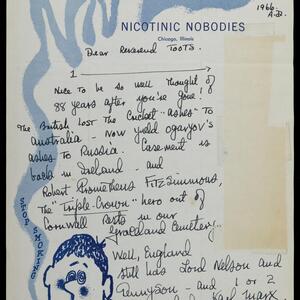 1966
A.D.
NICOTINIC NOBODIES
Chicago, Illinois
Dear Reverend TOOTS.
1
Nice to be so well thought of
88 years after you're gone!
The British Lost The Cricket "ashes" To
Australia - Now yield Ogaryov's
ashes To Russia. Casement is
back in Ireland - and
Robert Prometheus FitzSimmons,
The "Triple-Crown" hero out of
Cornwall Rests in our
Graceland Cemetery.
Well, England
still has Lord Nelson and
Tennyson - and 1 or 2
Karl Marx
STOP SMOKING